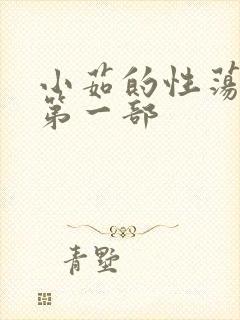 小茹的性荡
第一部
青墅